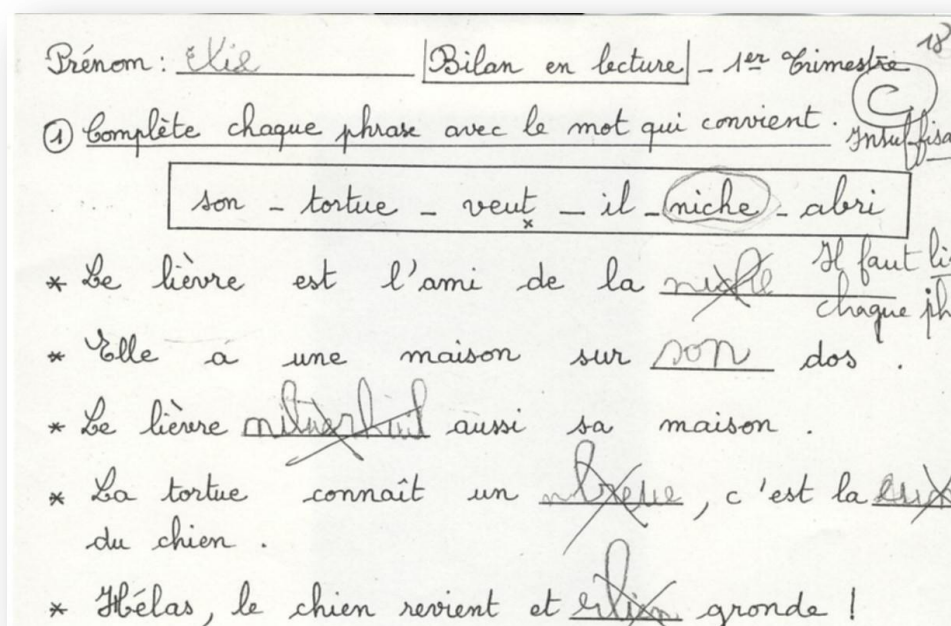 Prénom : Elie Bilan en lecture - 1er Trimestre 18
C
① Complète chaque phrase avec le mot qui convient . Insuffisa
son - tortue - veut - il - niche - abri
* Le lièvre est l'ami de la Il faut li
chaque ph
* Elle a une maison sur son dos .
* Le lièvre aussi sa maison .
* La tortue connaît un , c'est la
du chien .
* Hélas, le chien revient et gronde !